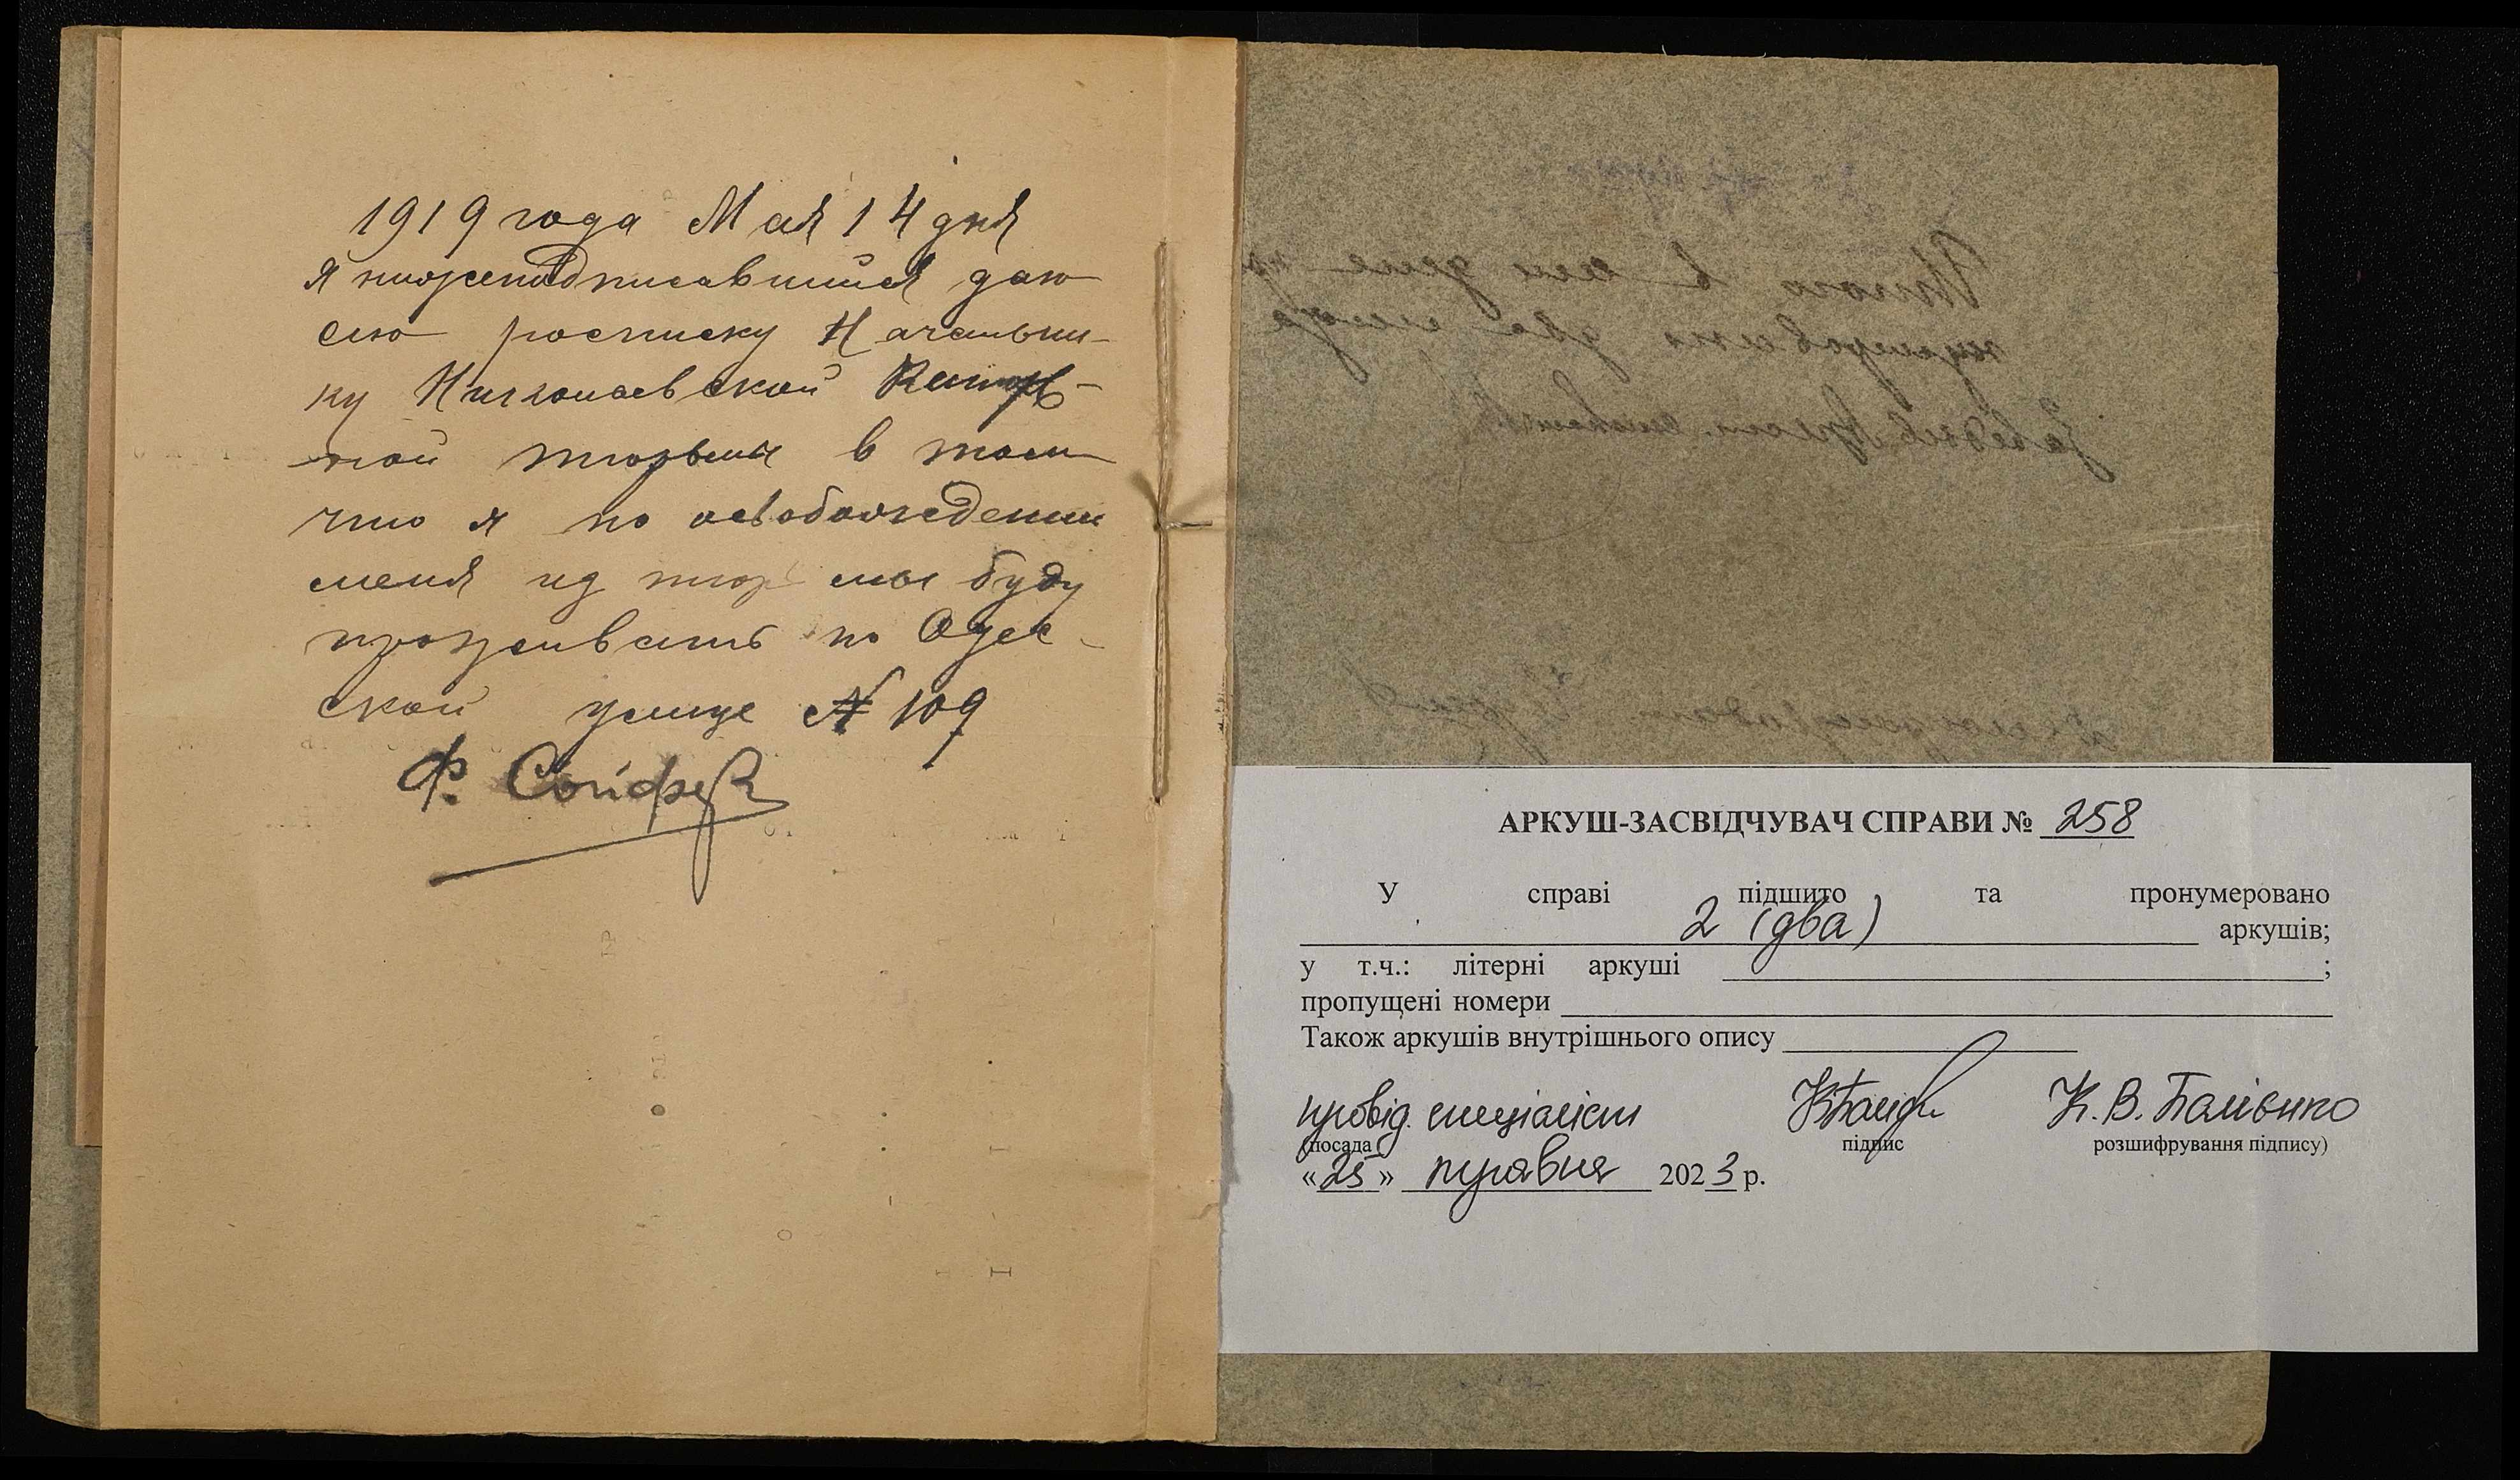 1919 года Мая 14 дня
я нижеподписавшийся даю
сию росписку Начальни-
ку Николаевской Каторж-
ной тюрьмы в том
что я по освобождении
меня из тюрьмы буду
проживать по Одес-
ской улице № 109
Ф. Сойфер
АРКУШ-ЗАСВІДЧУВАЧ СПРАВИ № 258
У справі підшито та пронумеровано
2 (два) аркушів;
у т.ч.: літерні аркуші ;
пропущені номери
Також аркушів внутрішнього опису
провід. спеціаліст К. В.
(посада підпис розшифрування підпису)
«25» травня 2023 р.